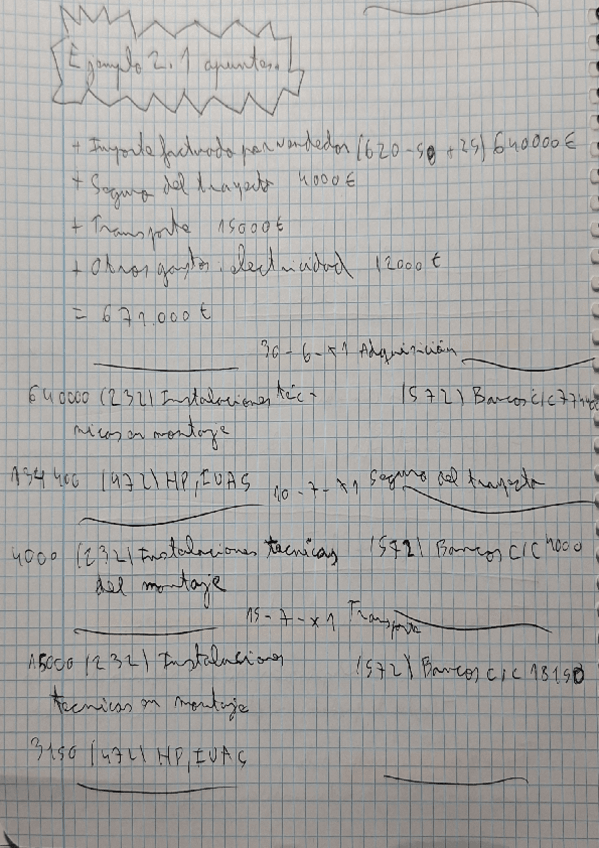 Ejemplo 2.1 apuntes.
+ Importe facturado por vendedor (620-50+25) 640000€
+ Seguro del trayecto 4000€
+ Transporte 15000€
+ Otros gastos: electricidad 12000€
= 671.000€
30-6-x1 Adquisición
640000 (232) Instalaciones téc- (572) Bancos C/C 774400
nicas en montaje
134400 (472) HP, IVAS
10-7-x1 Seguro del trayecto
4000 (232) Instalaciones tecnicas (572) Bancos C/C 4000
del montaje
15-7-x1 Transporte
15000 (232) Instalaciones (572) Bancos C/C 18150
tecnicas en montaje
3150 (472) HP, IVAS